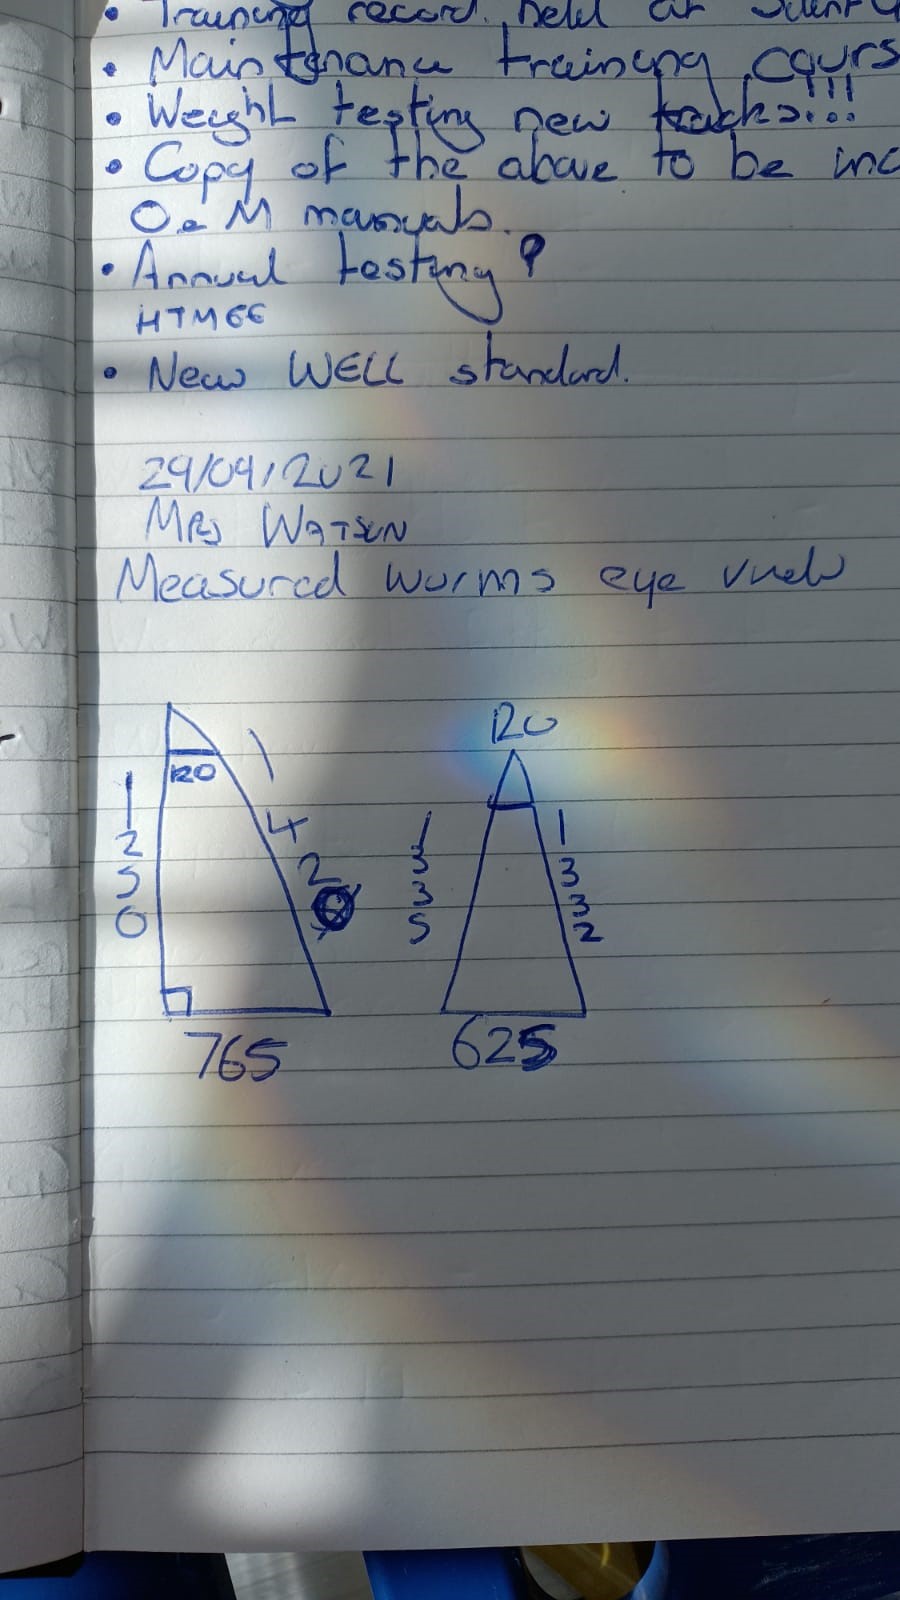 • Training record held at
• Maintenance training cours
• Weight testing new tracks!!!
• Copy of the above to be inc
O & M manuals.
• Annual testing?
HTM66
• New WELL standard.
29/04/2021
MRS WATSON
Measured worms eye view
120
120
1250
142
1335
1332
765
625